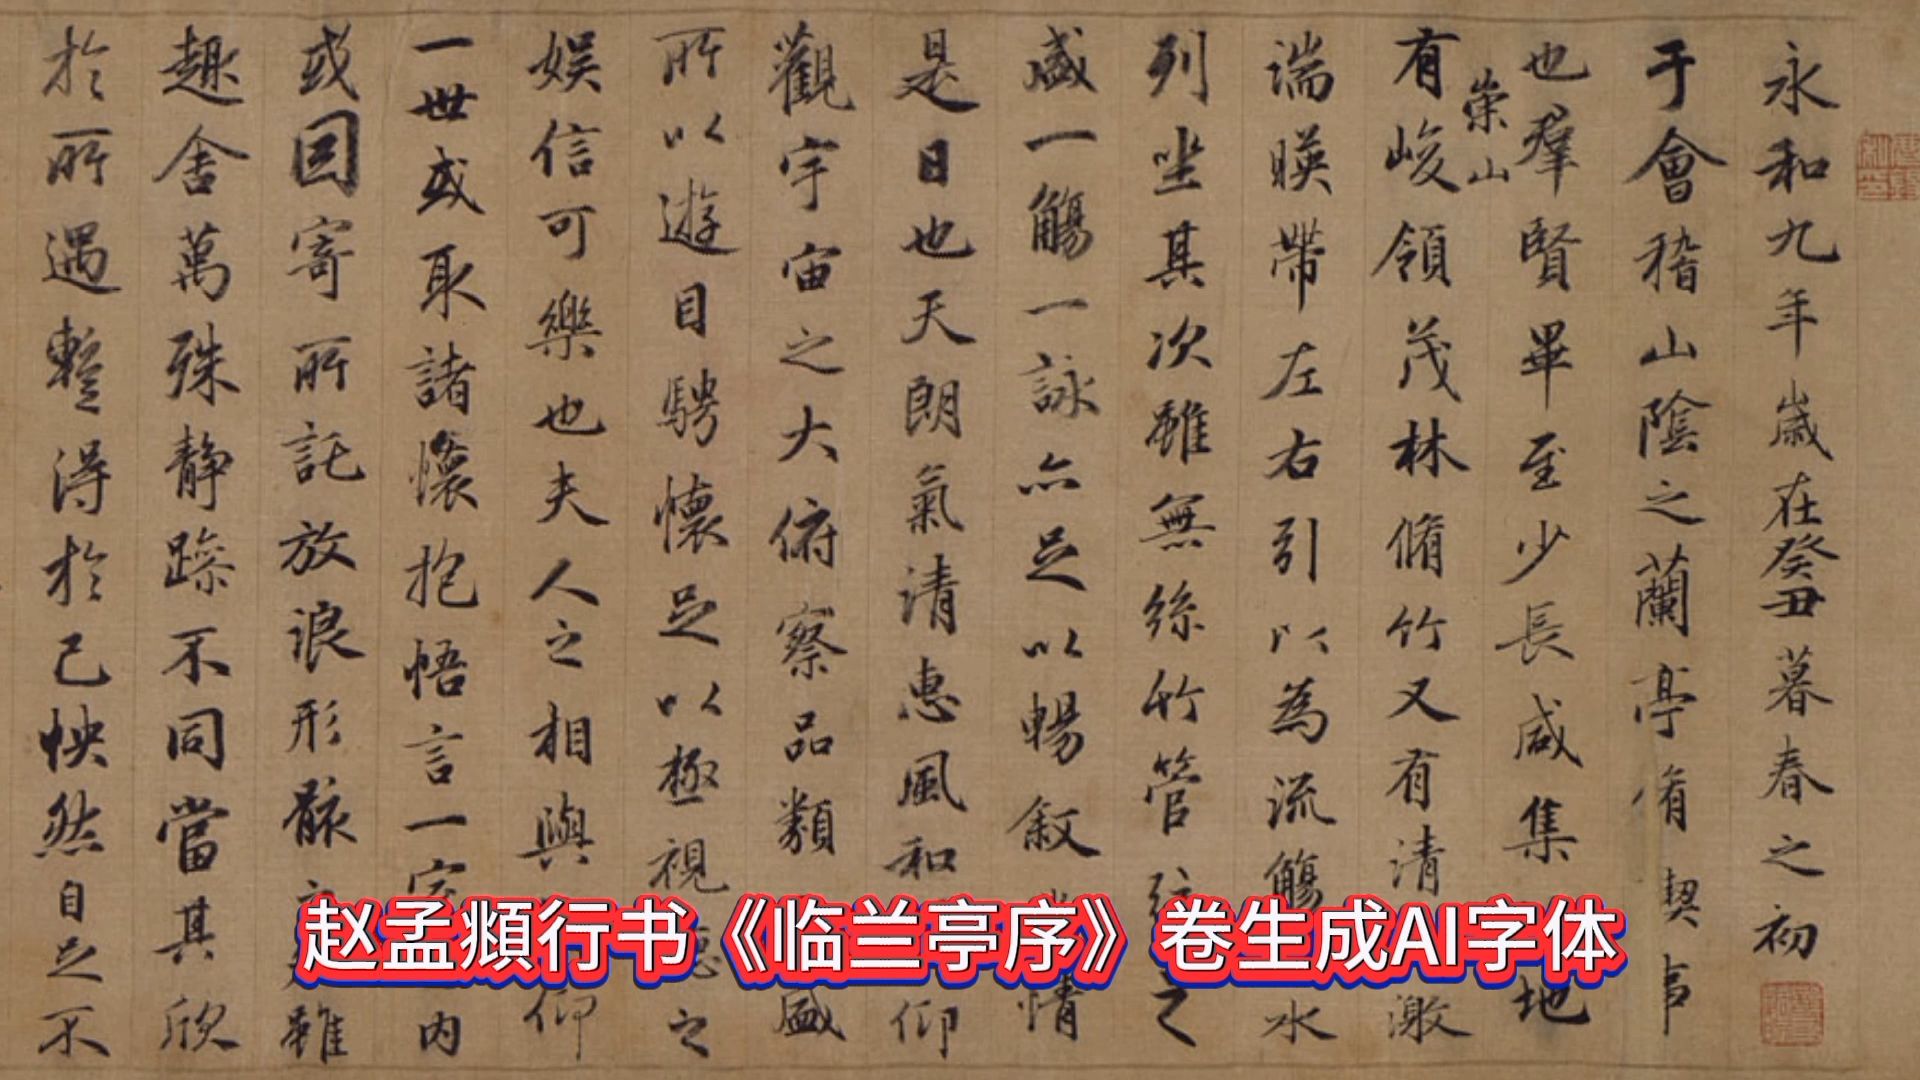 永和九年歲在癸丑暮春之初
于會稽山陰之蘭亭脩禊事
也羣賢畢至少長咸集地
崇山
有峻領茂林脩竹又有清激
湍暎帶左右引以為流觴水
列坐其次雖無絲竹管弦之
盛一觴一詠亦足以暢敘情
是日也天朗氣清惠風和仰
觀宇宙之大俯察品類盛
所以遊目騁懷足以極視聽之
娛信可樂也夫人之相與仰
一世或取諸懷抱悟言一室內
或因寄所託放浪形骸雖
趣舍萬殊静躁不同當其欣
於所遇暫得於己怏然自足不
赵孟頫行书《临兰亭序》卷生成AI字体